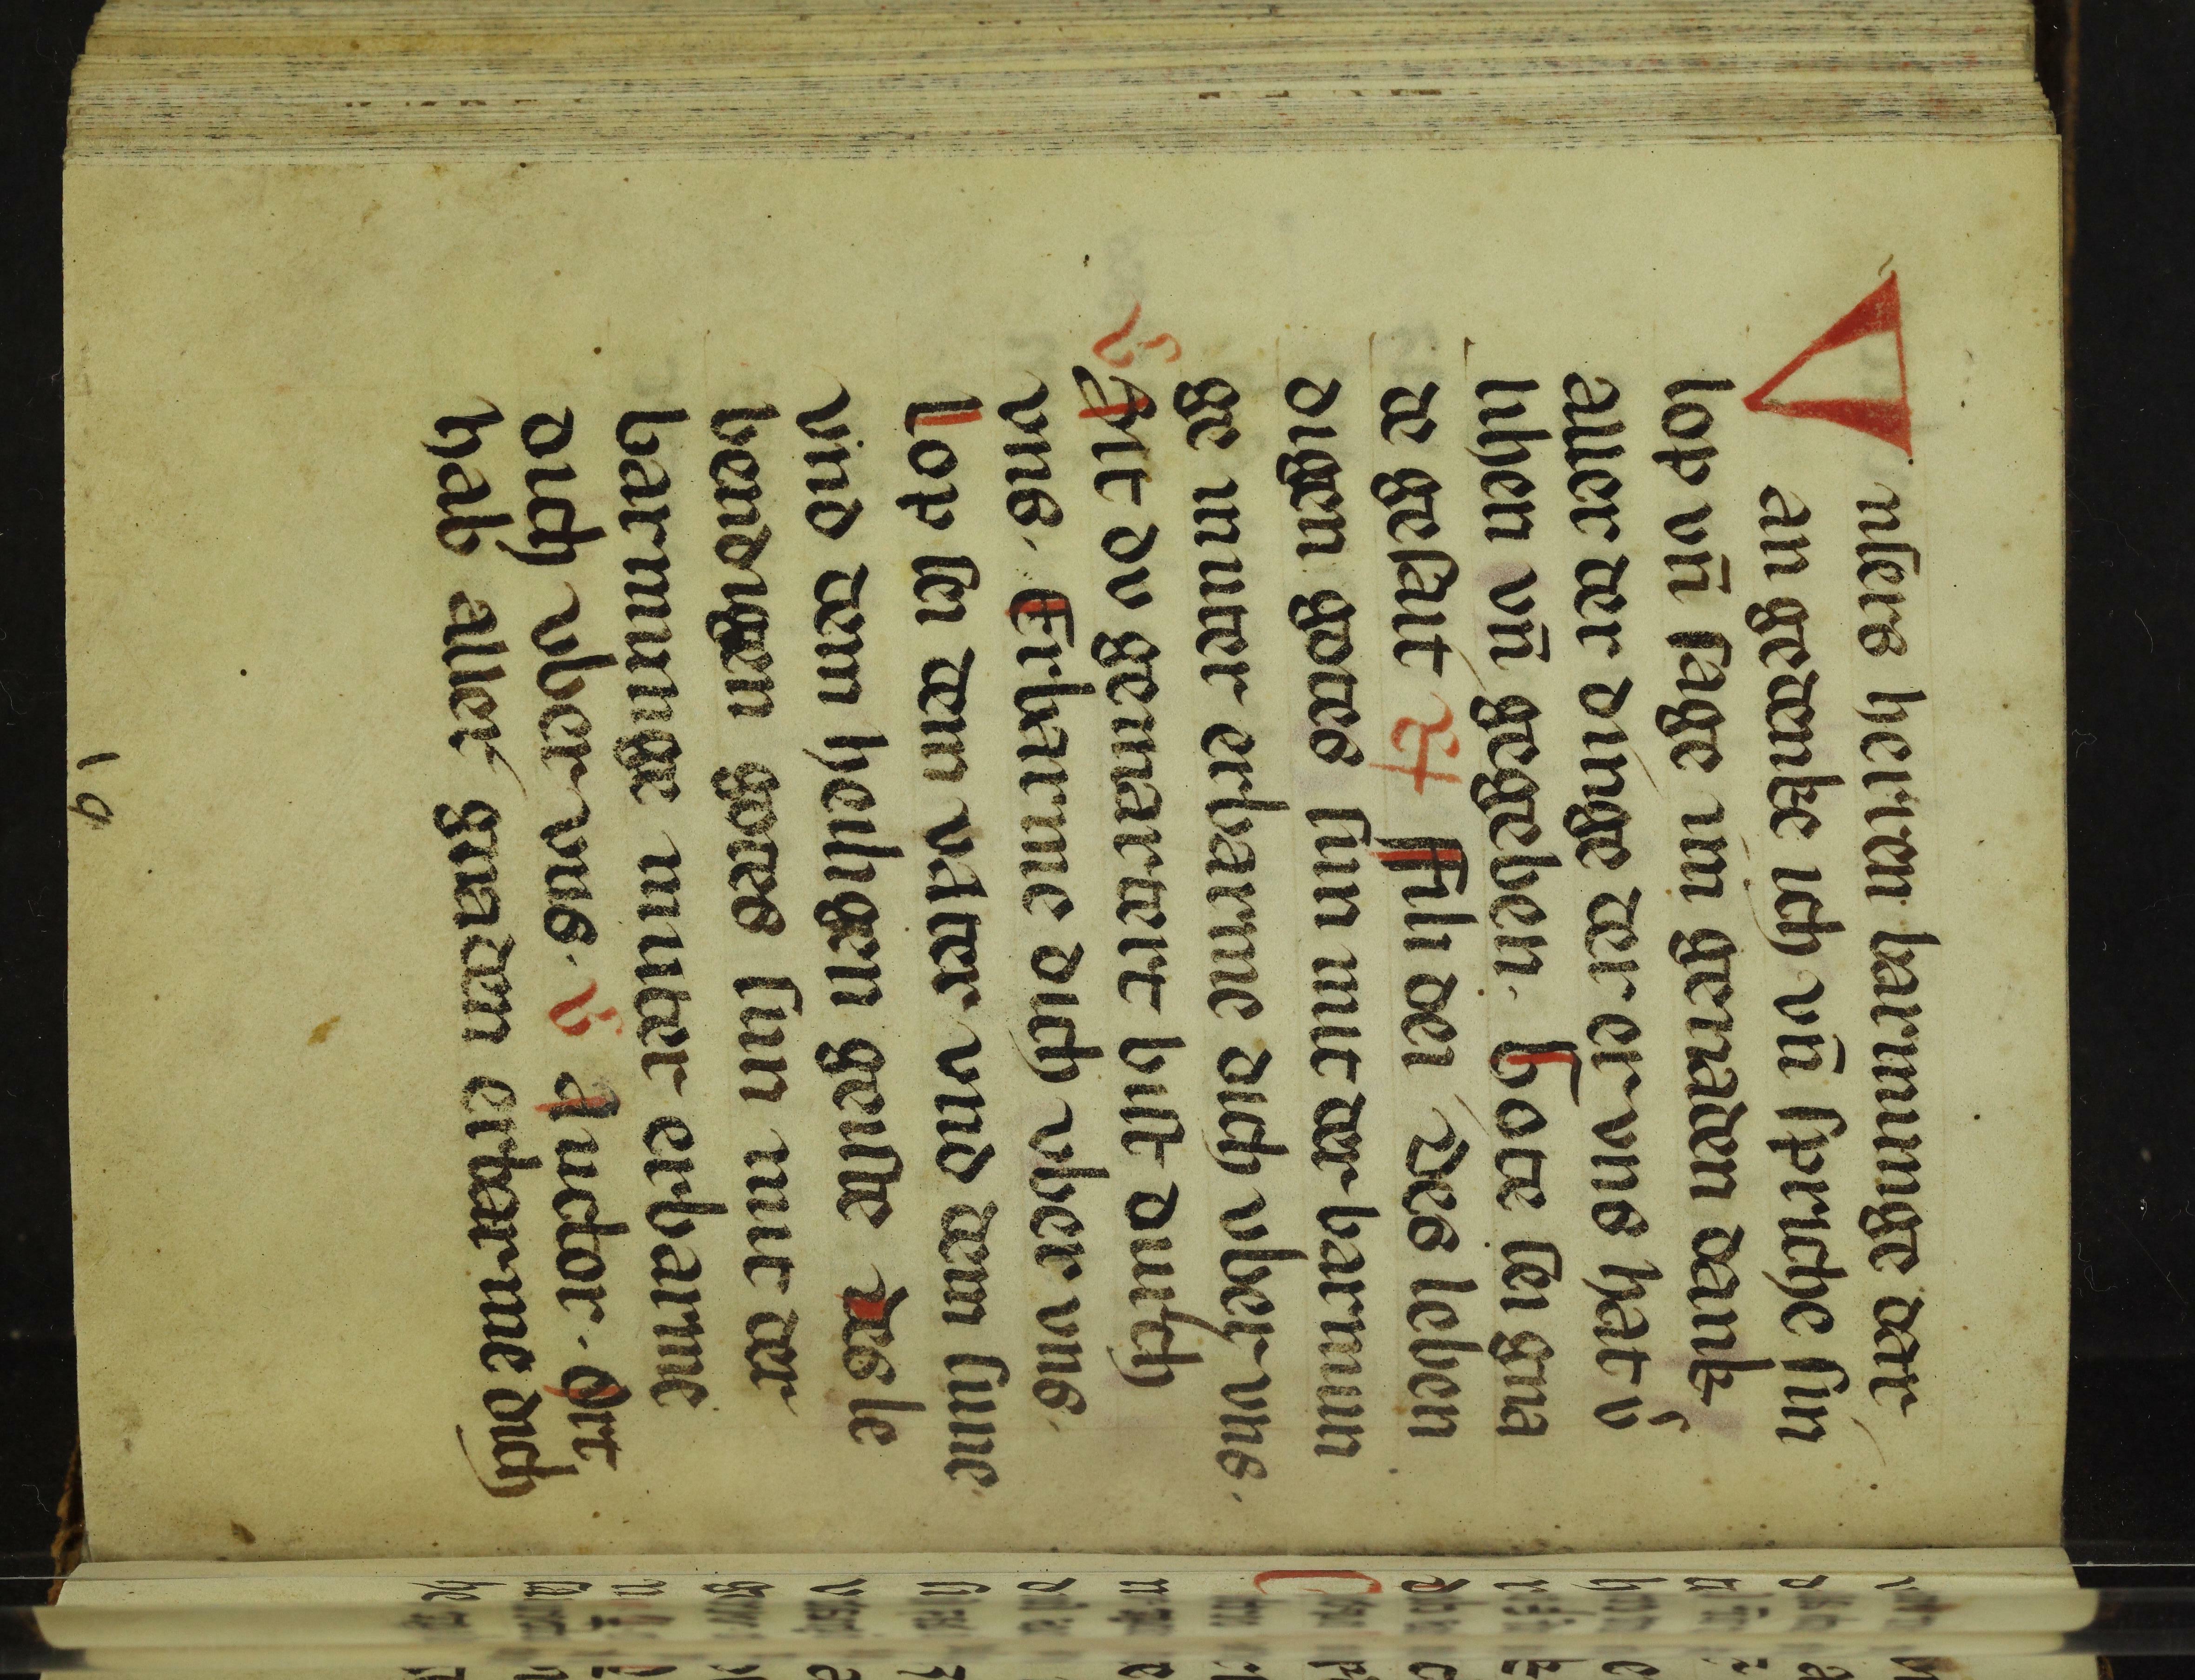 Vnsers herren barmunge der
an gedenke ich vñ spriche sin
lop vñ sage im genaden dank
aller der dinge der er vns hat v̊
lihen vñ gegeben. Gote sei gna
de geseit R Fili dei Des leben
digen gotes sun mit der barmun
ge muter erbarme dich vber vns.
V Sit dv gemartert bist durch
vns. Erbarme dich vber vns.
Lop sei dem vatter vnd dem sune
vnd dem heiligen geiste Des le
bendigen gotes sun mit der
barmunge muter erbarme
dich vber vns. V Auctor. Ort
hab aller gnaden erbarme dich